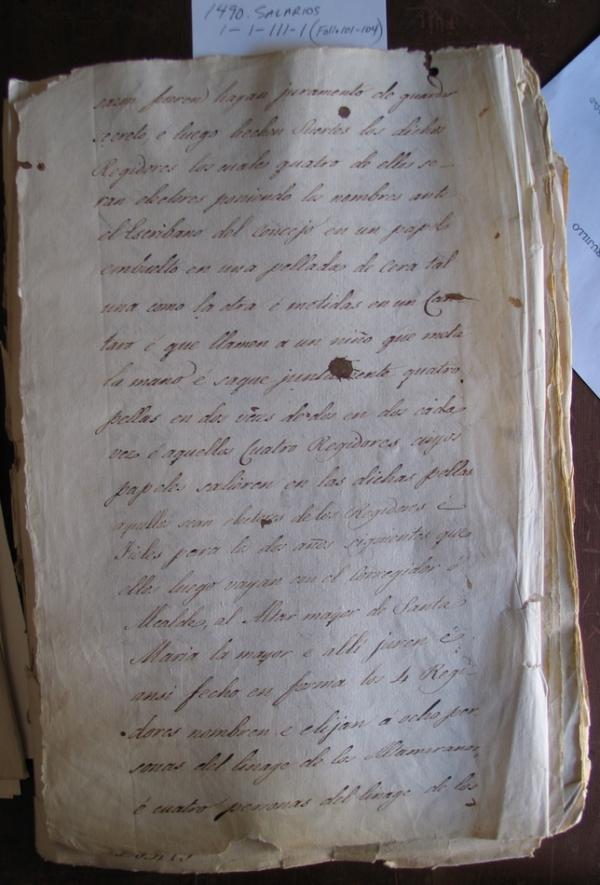 1490. SALARIOS
1-1-111-1 (Folio 101-104)
fueren hagan juramento de guardar
secreto, e luego hechen suertes los dichos
Regidores los cuales quatro de ellos se-
ran electores poniendo los nombres ante
el Escribano del concejo en un papel
embuelto en una pellada de cera tal
una como la otra é metidas en un Can
taro é que llamen a un niño que meta
la mano é saque juntamente quatro
pellas en dos veces de dos en dos cada
vez é aquellos Cuatro Regidores cuyos
papeles salieren en las dichas pellas
aquellos sean electores de los Regidores é
Fieles para los dos años siguientes que
ellos luego vayan con el Corregidor é
Alcalde, al Altar mayor de Santa
Maria la mayor e alli juren é
ansi fecho en forma los 4 Regi-
dores nombren e elijan á ocho per
sonas del linage de los Altamiranos
é cuatro personas del linage de los
UJILLO